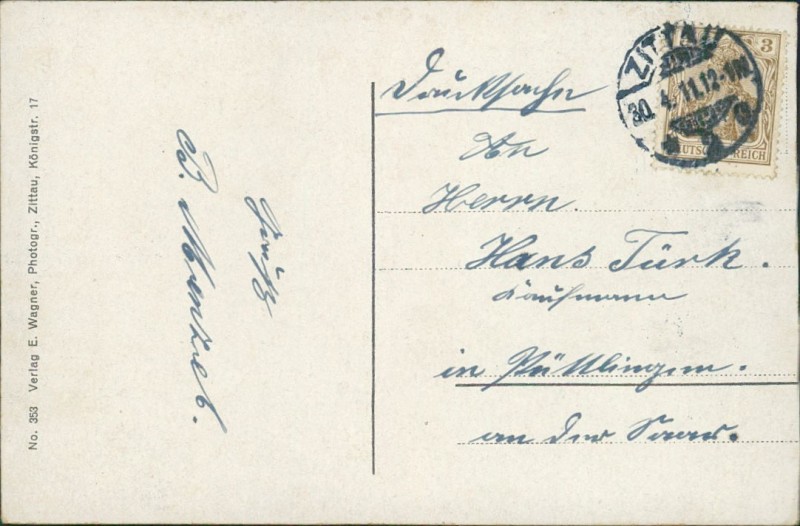 No. 353 Verlag E. Wagner, Photogr., Zittau, Königstr. 17
Gruß
B.
Drucksache
An
Herrn
Hans Türk.
Kaufmann
in Püttlingen.
an der Saar.
ZITTAU
30.4.11.12-1N
3
DEUTSCHES REICH